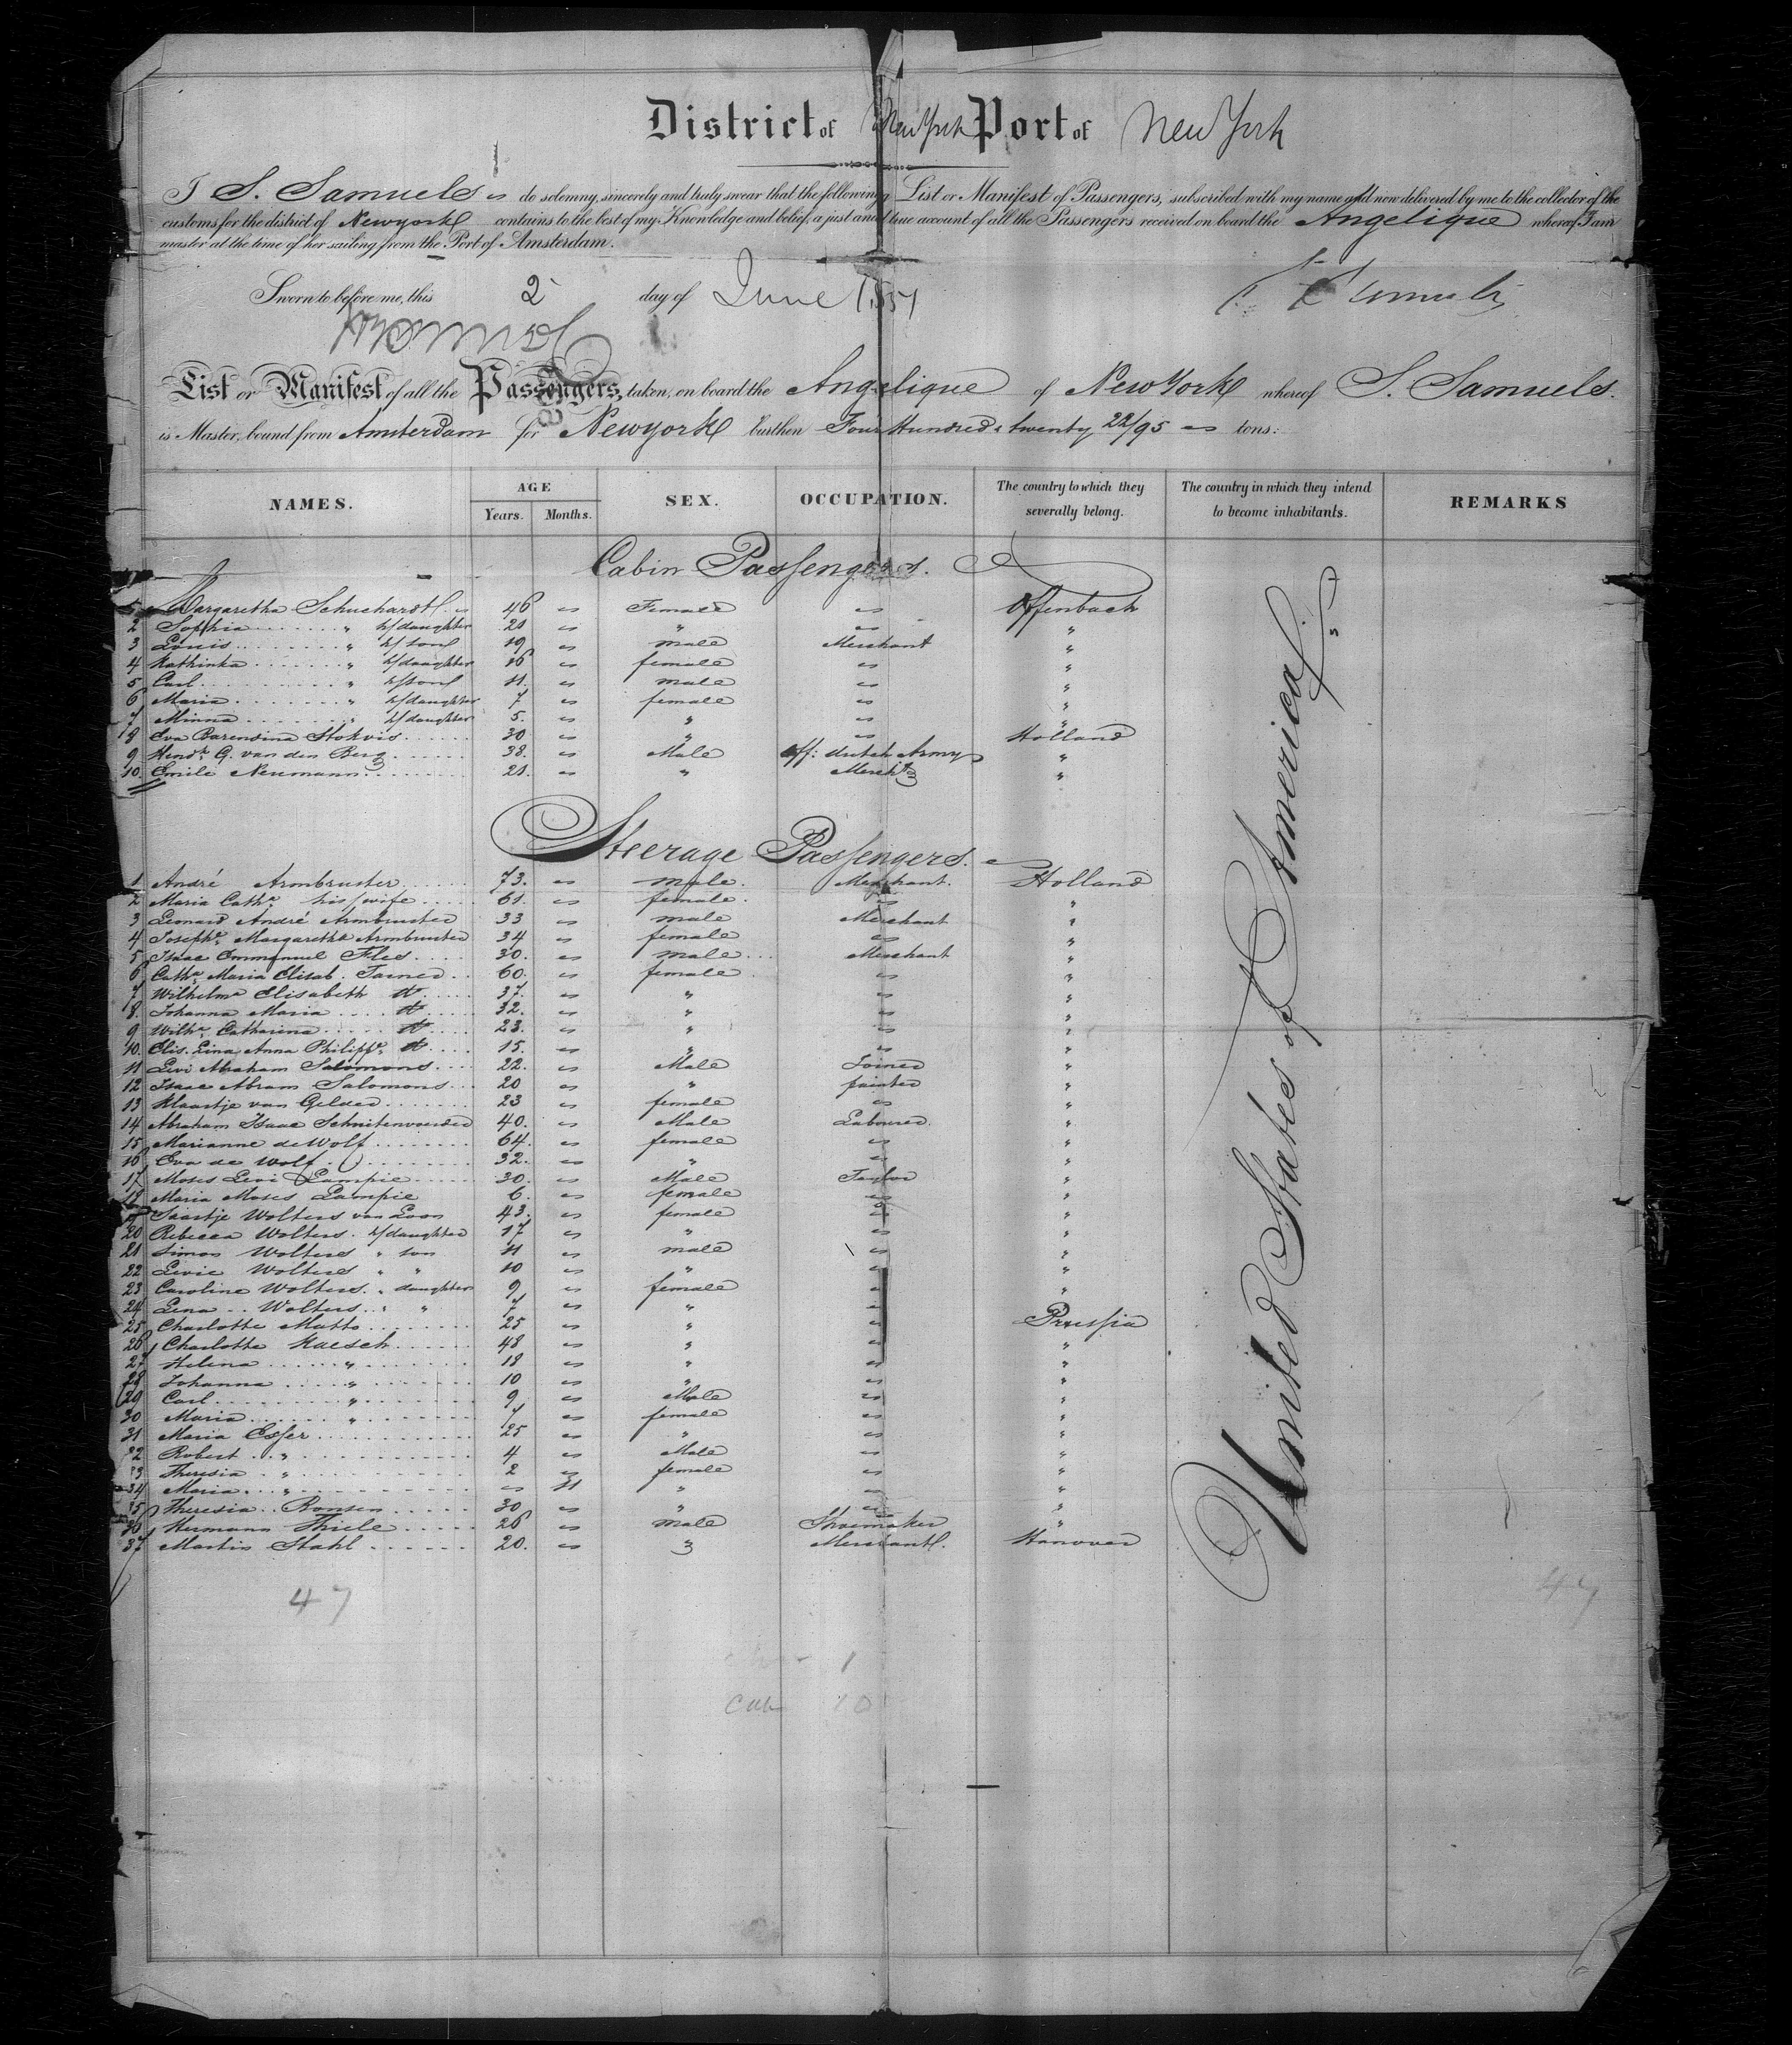 District of New York Port of New York
I S. Samuels do solemny, sincerely and truly swear that the following List or Manifest of Passengers, subscribed with my name and now delivered by me to the collector of the
customs for the district of Newyork contains to the best of my Knowledge and belief, a just and true account of all the Passengers received on board the Angelique whereof I am
master at the time of her sailing from the Port of Amsterdam.
Sworn to before me, this 2 day of June 1851
S. Samuels
List or Manifest of all the Passengers, taken, on board the Angelique of New York whereof S. Samuels.
is Master, bound from Amsterdam for Newyork burthen Four Hundred & twenty 22/95 tons:
NAMES. AGE SEX. OCCUPATION. The country to which they severally belong. The country in which they intend to become inhabitants. REMARKS
Years. Months.
Cabin Passengers.
1 Margaretha Schuchardt 46 Female Offenbach
2 Sophia " h/daughter 21 " "
3 Louis " h/son 19 male Merchant "
4 Kathinka " h/daughter 16 female "
5 Carl " h/son 11 male "
6 Maria " h/daughter 7 female "
7 Minna " h/daughter 5 " "
8 Eva Barendina Stokvis 30 " Holland
9 Hendk G. van den Berg 38. Male off: dutch Army "
10. Emile Neumann 21. " Mercht "
Steerage Passengers.
1 André Armbruster 73. male. Merchant. Holland
2 Maria Cathe his wife 61. female. "
3 Leonard André Armbruster 33 male Merchant "
4 Josephe Margaretha Armbruster 34 female "
5 Isaac Emmanuel Fles 30. male Merchant "
6 Cathe Maria Elisab. 60. female "
7 Wilhelma Elisabeth do 37. " "
8. Johanna Maria do 32. " "
9 Wilhe Catharina do 23. " "
10. Elis. Lina Anna Philippe do 15. " "
11 Levi Abraham Salomons 22. Male Joiner "
12 Isaac Abram Salomons 20 " painter "
13 Klaartje van Gelder 23 female "
14 Abraham Isaac 40. Male Labourer "
15 Marianne de Wolf 64. female "
16 Eva de Wolf 32. " "
17 Moses Levi Lampie 30. Male Taylor "
18 Maria Moses Lampie 6. female "
19 Saartje Wolters van Loon 43. female "
20 Rebecca Wolters. h/daughter 17 " "
21 Simon Wolters " son 11 male "
22 Levie Wolters " " 10 " "
23 Caroline Wolters. " daughter 9 female "
24 Lena Wolters. " " 7 " "
25 Charlotte Mutto 25 " Prussia
26 Charlotte Kaesch 48 " "
27 Helena " 18 " "
28 Johanna " 10 " "
29 Carl " 9 Male "
30 Maria " 7 female "
31 Maria Esser 25 " "
32 Robert " 4 Male "
33 Theresia " 2 female "
34 Maria " 11 " "
35 Theresia Ronsen 30 " "
36 Hermann Thiele 26 male Shoemaker "
37 Martin Stahl 20. " Merchant. Hanover
United States of America
47
47
1
Cab 10